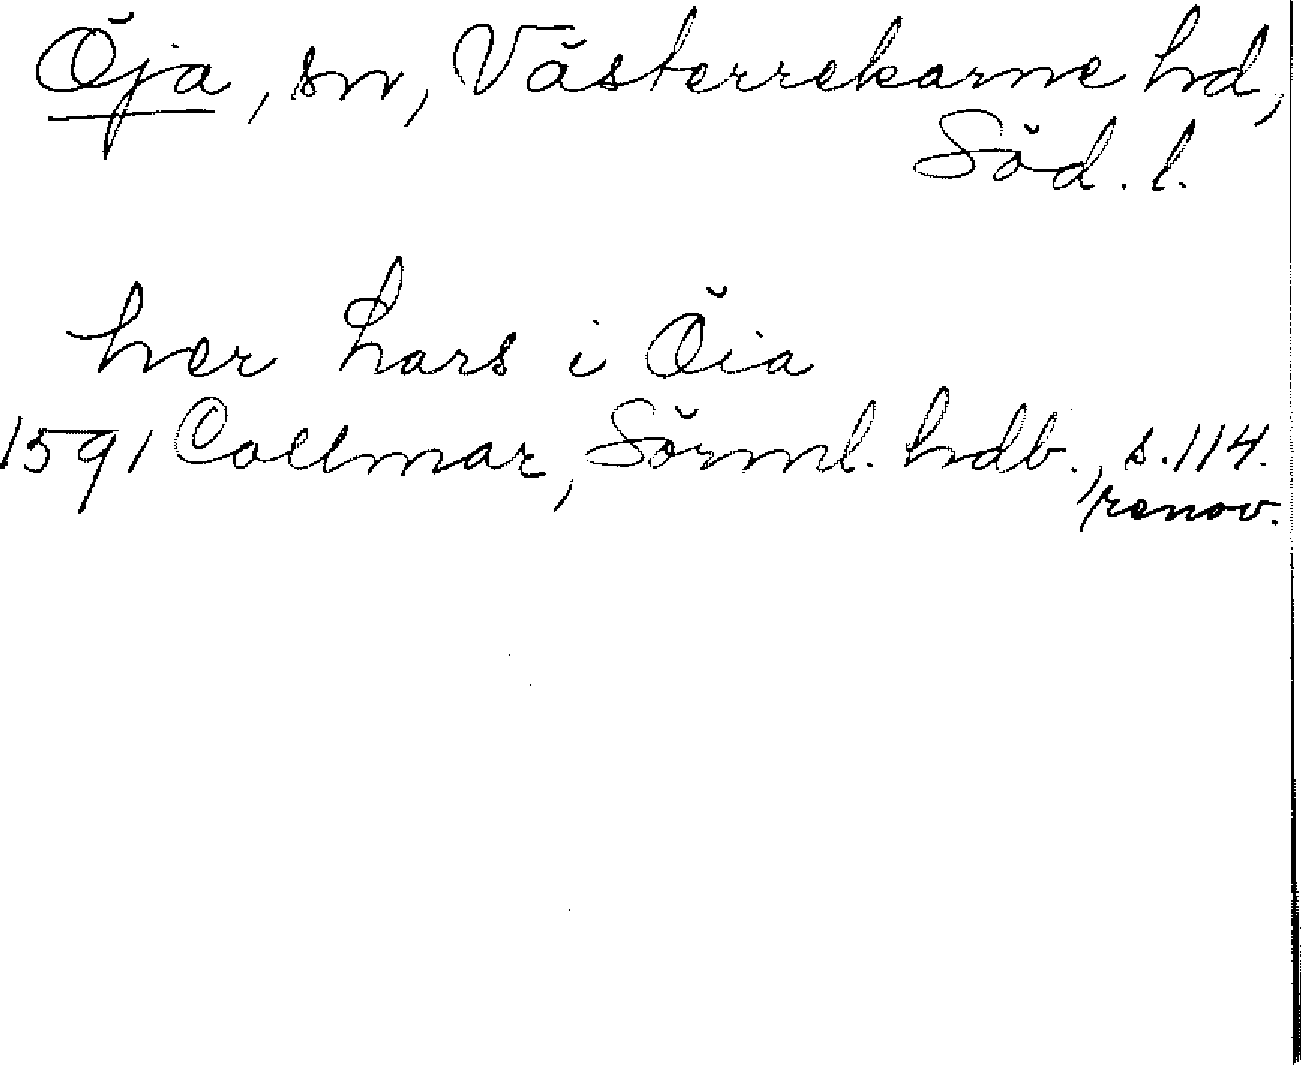 Öja, sn, Västerrekarne hd,
Söd. l.
her Lars i Öia
1591 Collmar, Sörml. hdb., s. 114.
renov.